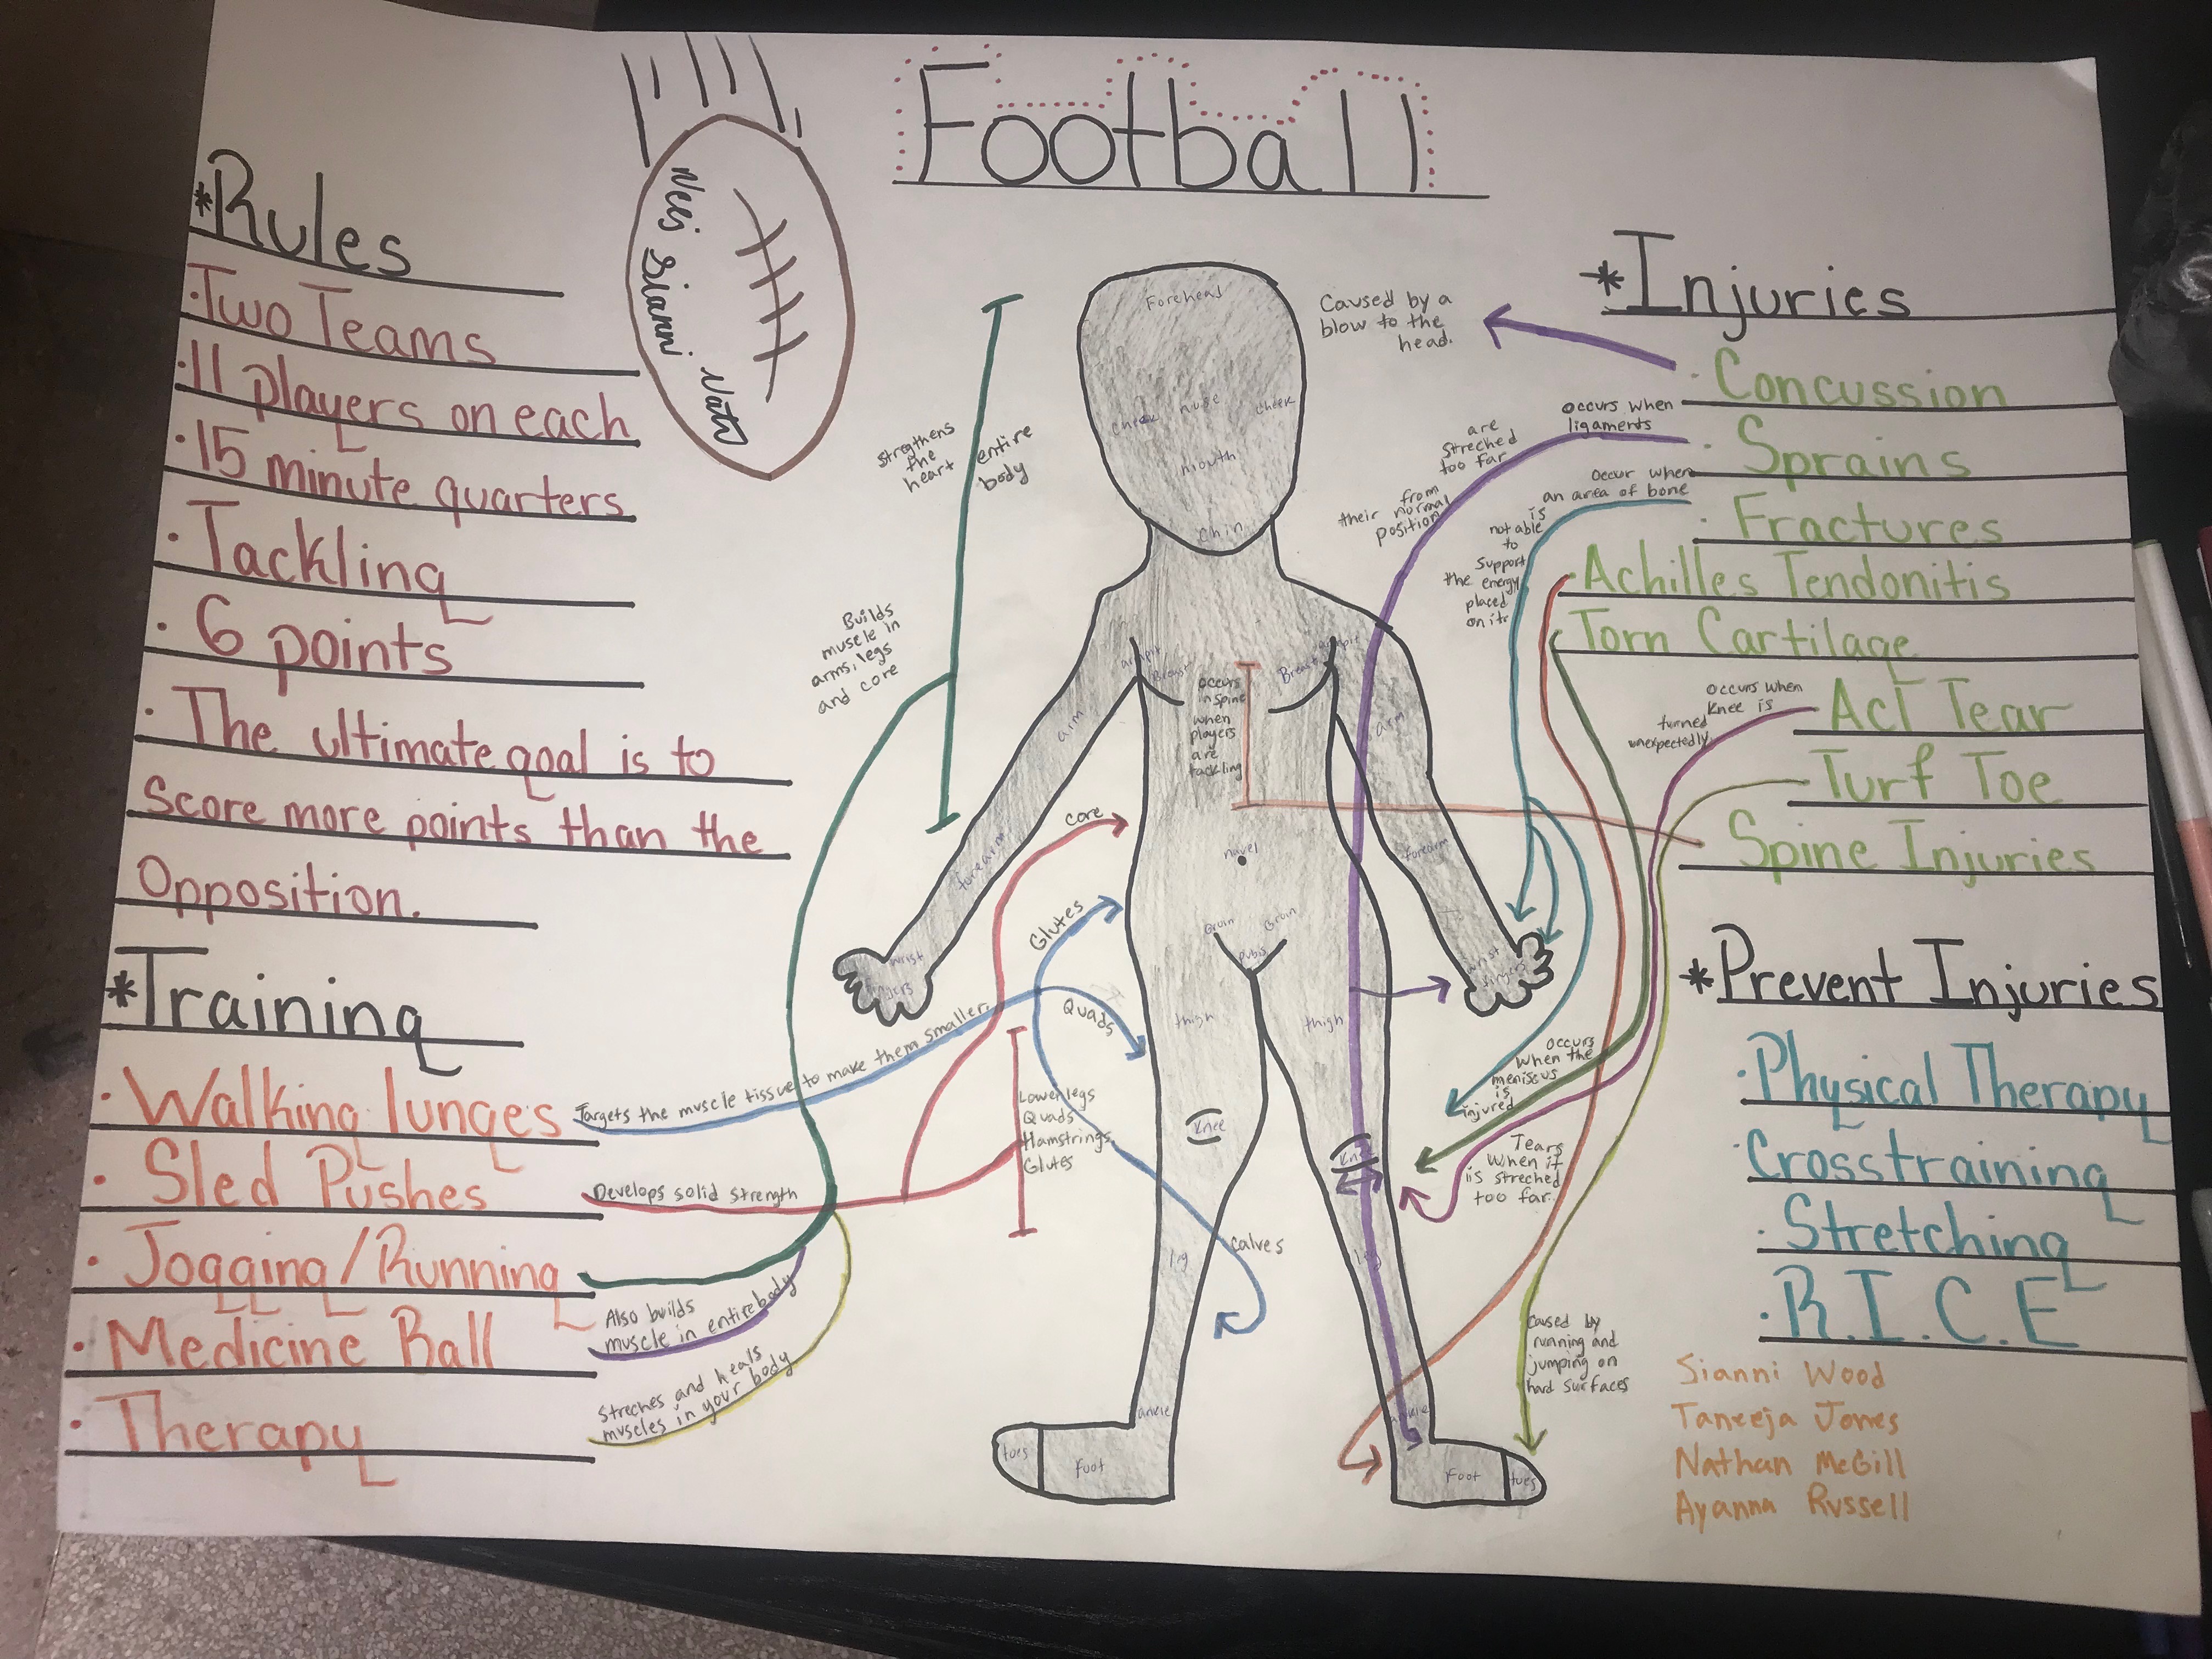 Football
Neej Sianni Nate
*Rules
·Two Teams
·11 players on each
·15 minute quarters
·Tackling
·6 points
·The ultimate goal is to
Score more points than the
Opposition.
*Training
·Walking lunges
Targets the muscle tissue to make them smaller.
Glutes
Quads
calves
·Sled Pushes
Develops solid strength
core
Lower legs
Quads
Hamstrings
Glutes
·Jogging/Running
Builds
muscle in
arms, legs
and core
stregthens
the
heart
entire
body
·Medicine Ball
Also builds
muscle in entire body
·Therapy
Streches and heals
muscles in your body
Forehead
cheek nose cheek
mouth
Chin
armpit
armpit
Breast
Breast
arm
arm
forearm
forearm
navel
Groin
Groin
pubis
wrist
fingers
wrist
fingers
thigh
thigh
Knee
Knee
leg
leg
ankle
ankle
toes
foot
foot
toes
*Injuries
·Concussion
Caused by a
blow to the
head.
·Sprains
occurs when
ligaments
are
streched
too far
from
their normal
position
·Fractures
occur when
an area of bone
is
not able
to
support
the energy
placed
on it.
·Achilles Tendonitis
Tears
when it
is streched
too far.
·Torn Cartilage
occurs
when the
meniscus
is
injured
·Acl Tear
occurs when
knee is
turned
unexpectedly
·Turf Toe
Caused by
running and
jumping on
hard surfaces
·Spine Injuries
occurs
in spine
when
players
are
tackling
*Prevent Injuries
·Physical Therapy
·Crosstraining
·Stretching
·R.I.C.E
Sianni Wood
Taneeja Jones
Nathan McGill
Ayanna Russell